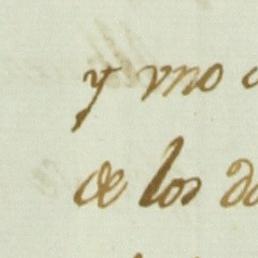 y vno
de los